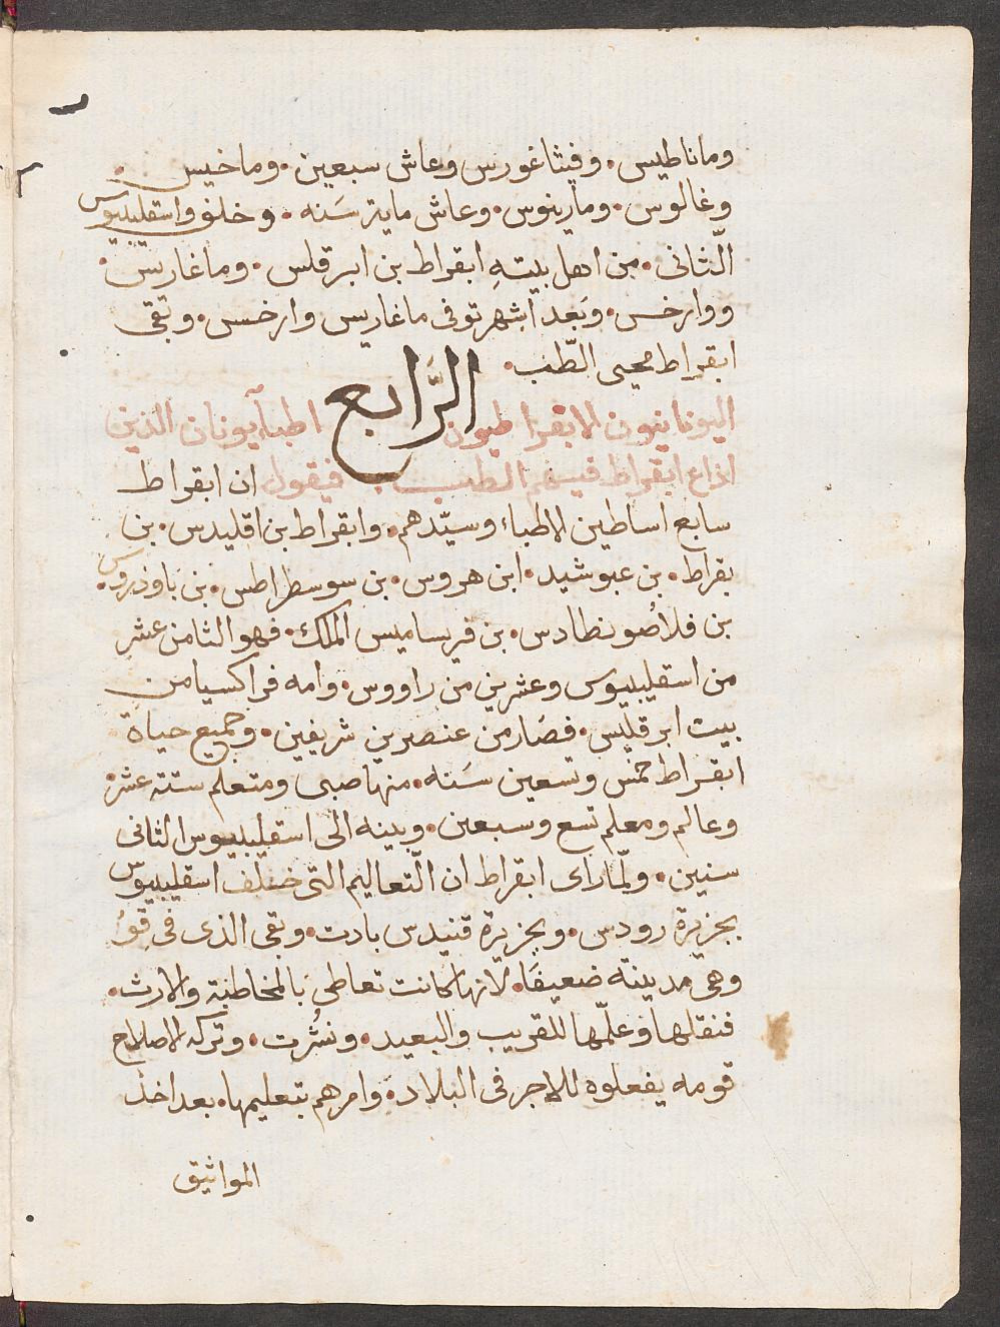 وماناطيس. وفيثاغورس وعاش سبعين. وماخيس.
وغالوس. ومارينوس. وعاش ماية سَنه. وخلف واسقليبيوس
الثانى. من اهل بيتهِ ابقراط بن ابرقلس. وماغاريس.
ووارخس. وبَعد اشهر توفى ماغاريس وارخسس. وبقى
ابقراط محيى الطّب.
الرَّابع
اليونانيون الابقراطيون اطبآء يونان الذين
اذاع ابقراط فيهم الطب. فيقول ان ابقراط
سابع اساطين الاطباء وسيّدهم. وابقراط بن اقليدس. بن
بقراط. بن عبوشيد. ابن هروس. بن سوسطراطس. بن باوذروس.
بن فلاصُونطادس. بن قريساميس الملك. فهو الثامن عشر
من اسقليبيوس وعشرين من راووس. وامه فراكسيا من
بيت ابرقليس. فصَار من عنصرين شريفين. وجميع حياة
ابقراط خمس وتسعين سَنه. منها صبى ومتعلم ستة عشر
وعالم ومعلم تسع وسبعين. وبينه الى اسقليبيوس الثانى
سنين. ولمّا راى ابقراط ان التّعاليم التى خلف اسقليبيوس
بجزيرة رودس. وبجزيرة قنيدس بادت. وبقى الذى فى قوُ
وهى مدينته ضعيفًا. لانها كانت تعاطى بالمخاطبة والارث.
فنقلها وعلّمها للقريب والبعيد. ونشُرت. وتركه لاصلاح
قومه يفعلوه للاجر فى البلاد. وامرهم بتعليمها. بعد اخذ
المواثيق